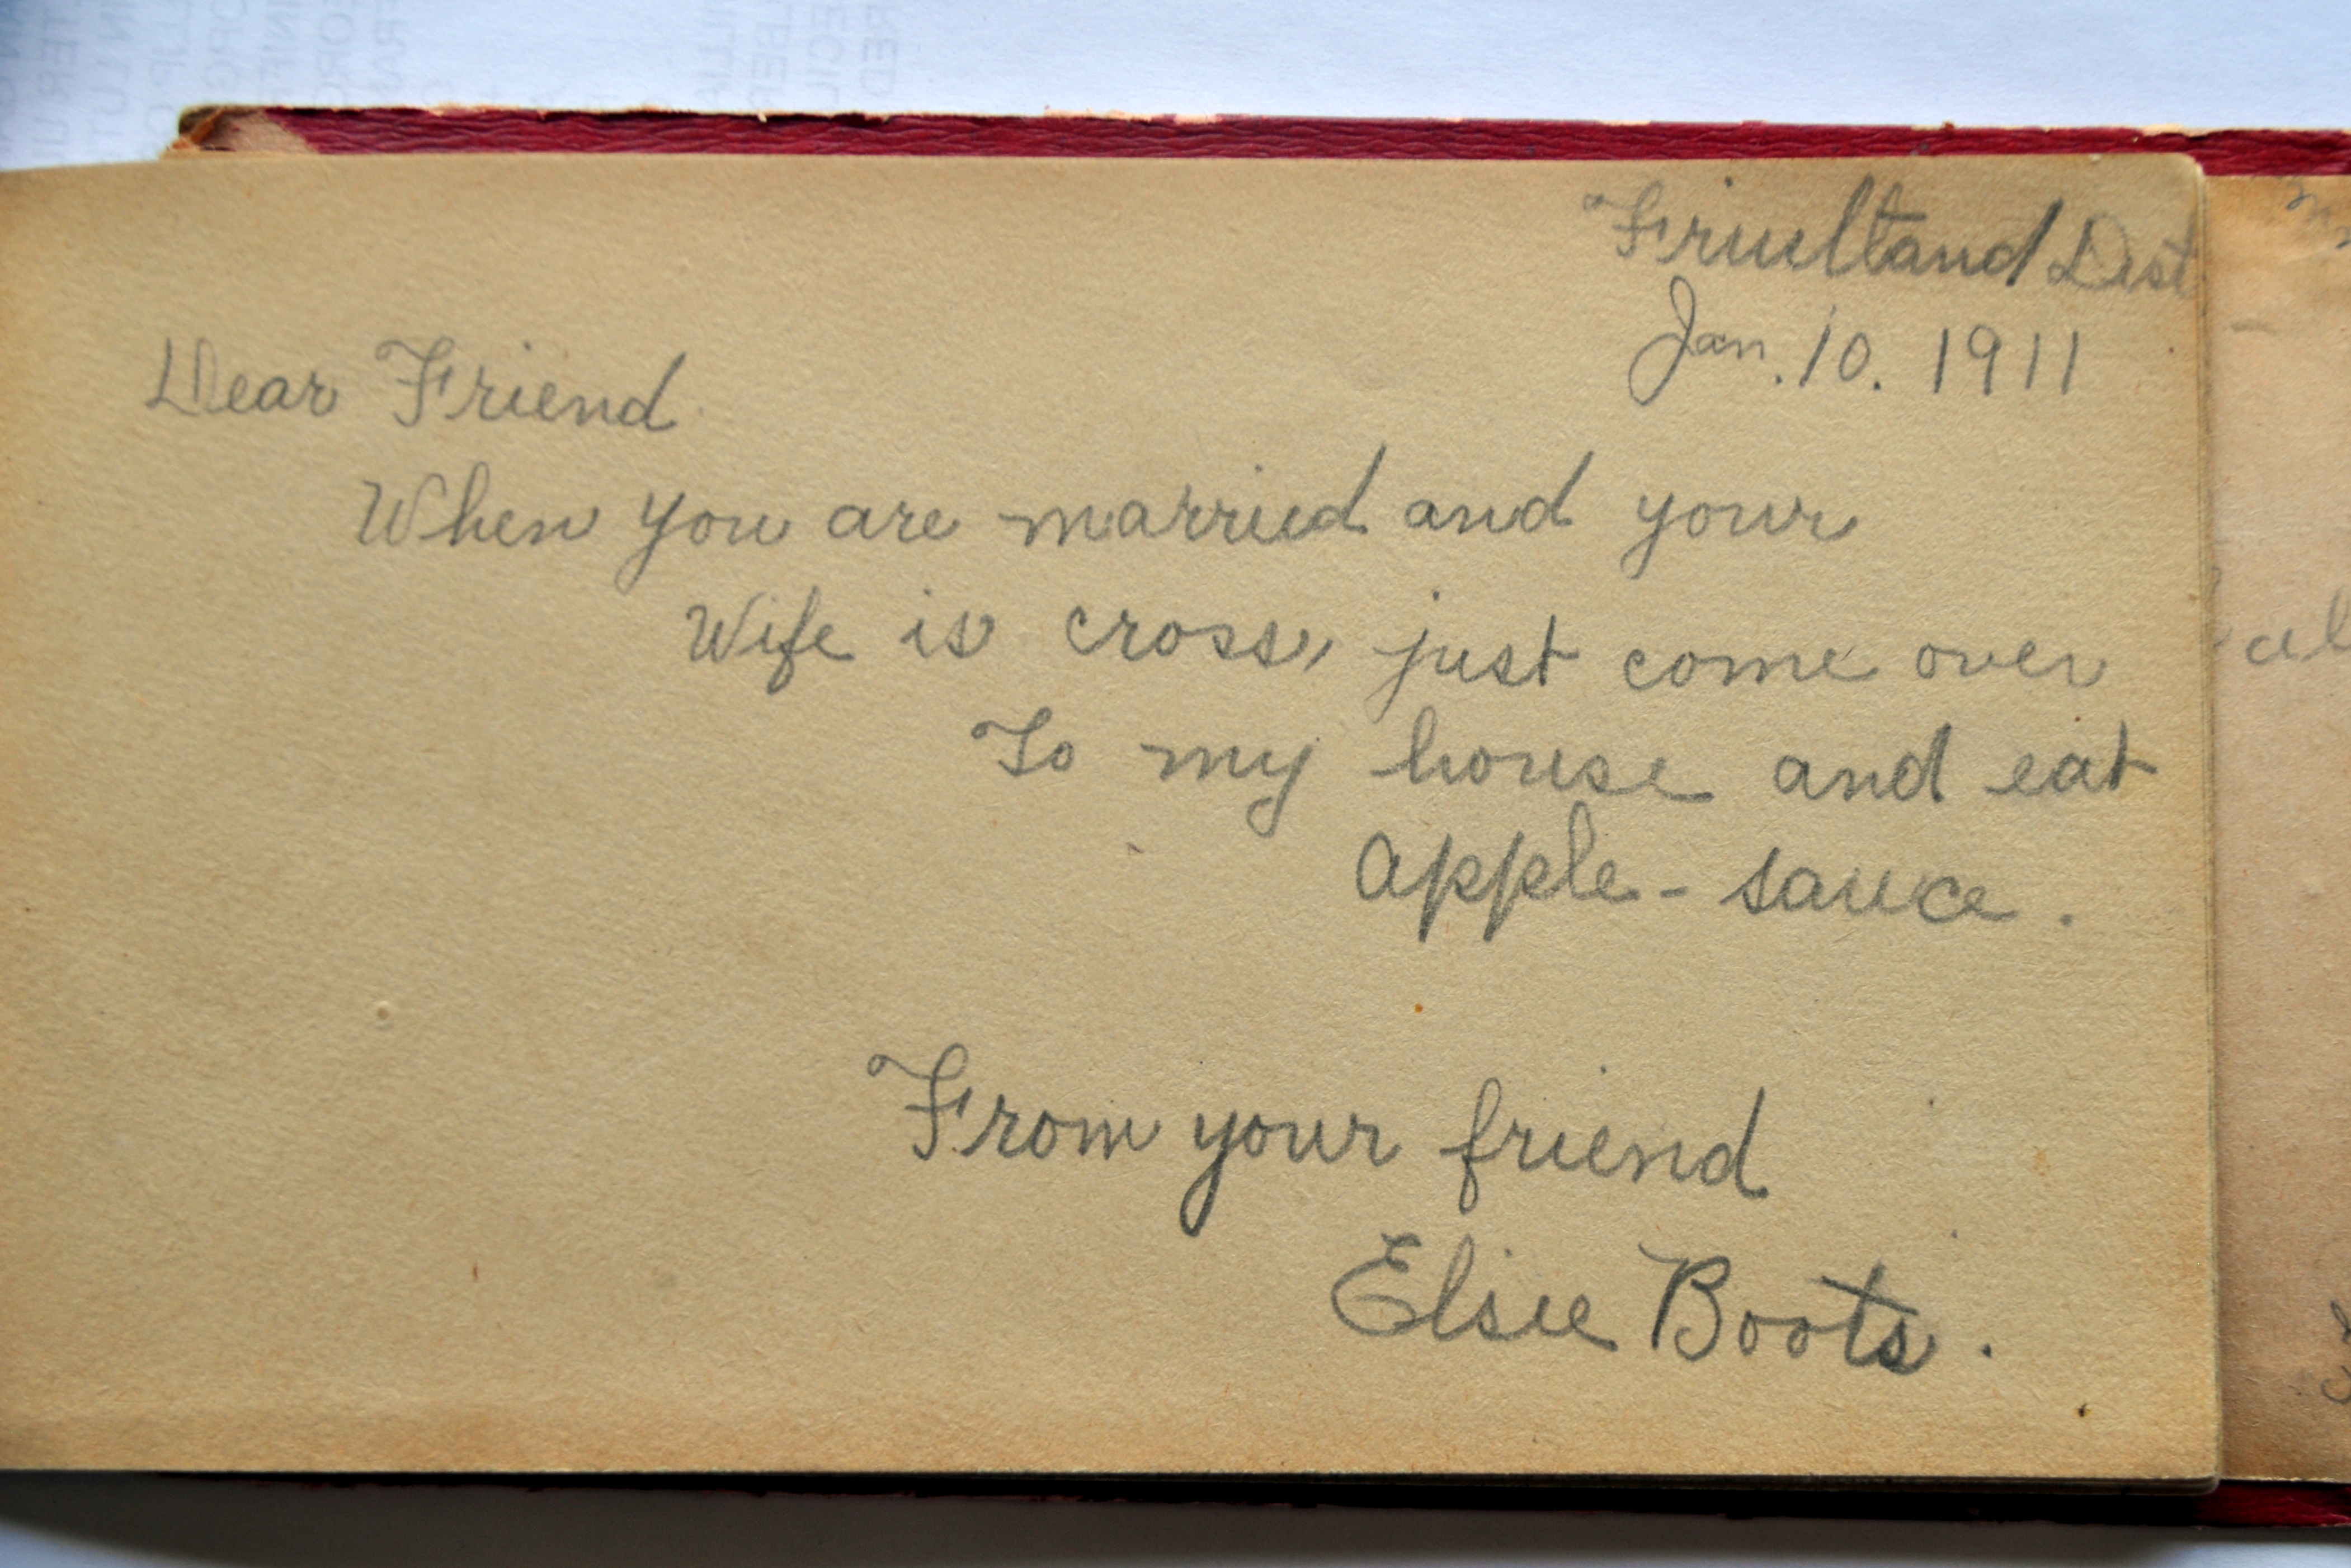 Fruitland Dist
Jan. 10. 1911
Dear Friend
When you are married and your
Wife is cross, just come over
To my house and eat
apple-sauce.
From your friend
Elsie Boots.